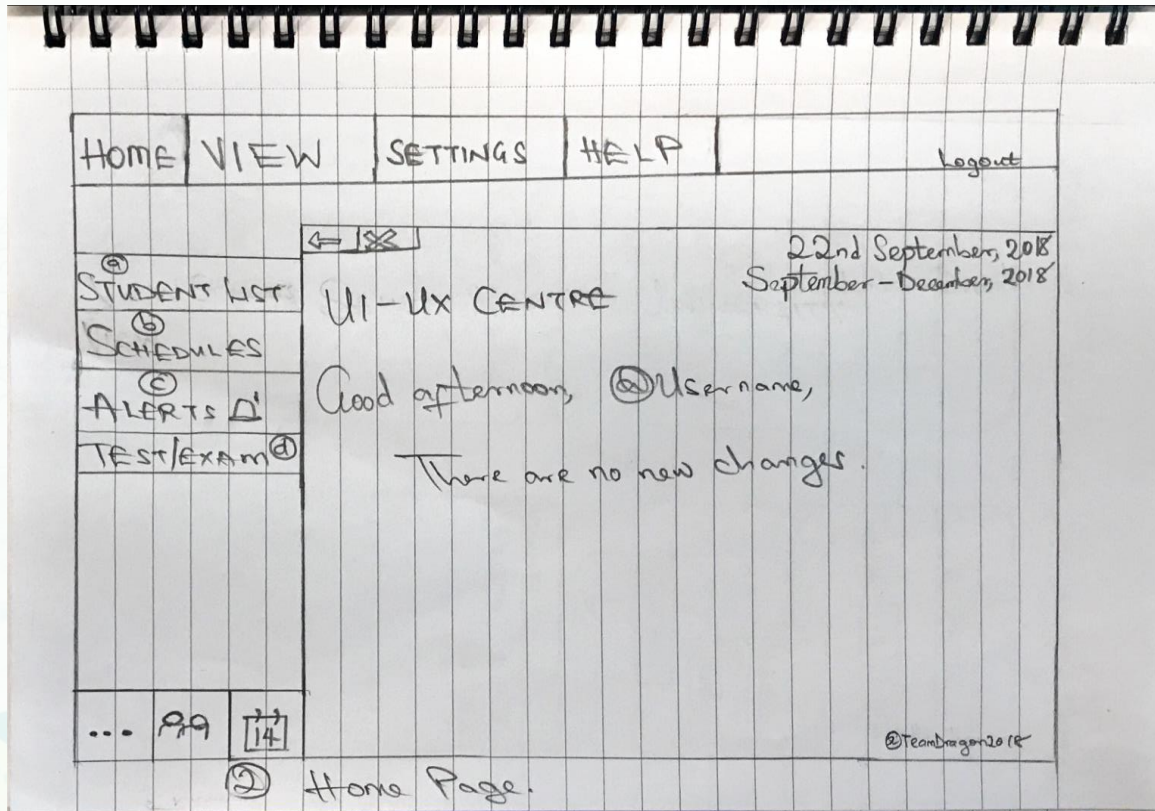 HOME VIEW SETTINGS HELP Logout
22nd September, 2018
September - December, 2018
ⓐ
STUDENT LIST
ⓑ
SCHEDULES
ⓒ
ALERTS
TEST/EXAM ⓓ
UI-UX CENTRE
Good afternoon, @Username,
There are no new changes.
... 14
@TeamDragon2018
② Home Page.